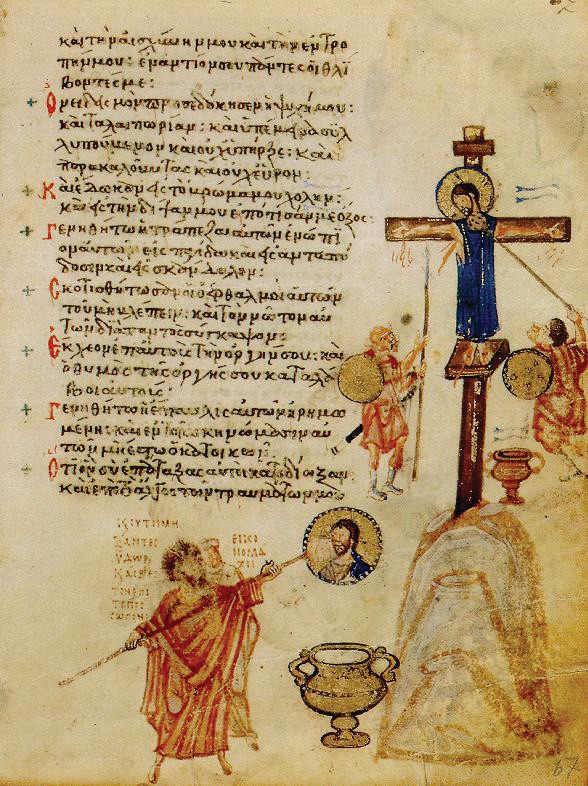 καὶ τὴν αἰσχύνην μου καὶ τὴν ἐντρο
πήν μου: ἐναντίον σου πάντες οἱ θλί
βοντές με:
Ὀνειδισμὸν προσεδόκησεν ἡ ψυχή μου:
καὶ ταλαιπωρίαν: καὶ ὑπέμεινα συλ
λυπούμενον καὶ οὐχ ὑπῆρξε: καὶ
παρακαλοῦντας καὶ οὐχ εὗρον:
Καὶ ἔδωκαν εἰς τὸ βρῶμα μου χολήν:
καὶ εἰς τὴν δίψαν μου ἐπότισάν με ὄξος:
Γενηθήτω ἡ τράπεζα αὐτῶν ἐνώπι
ον αὐτῶν εἰς παγίδα καὶ εἰς ἀνταπό
δοσιν καὶ εἰς σκάνδαλον:
Σκοτισθήτωσαν οἱ ὀφθαλμοὶ αὐτῶν
τοῦ μὴ βλέπειν: καὶ τὸν νῶτον αὐ
τῶν διὰ παντὸς σύγκαμψον:
Ἔκχεον ἐπ' αὐτοὺς τὴν ὀργήν σου: καὶ
ὁ θυμὸς τῆς ὀργῆς σου καταλά
βοι αὐτούς:
Γενηθήτω ἡ ἔπαυλις αὐτῶν ἠρημω
μένη: καὶ ἐν τοῖς σκηνώμασιν αὐ
τῶν μὴ ἔστω ὁ κατοικῶν:
Ὅτι ὃν σὺ ἐπάταξας αὐτοὶ κατεδίωξαν:
καὶ ἐπὶ τὸ ἄλγος τῶν τραυμάτων μου
ΞΑΝΤΕΣ
ΥΔΩΡ
ΕΙΚΟ
ΝΟΜΑ
ΧΟΙ
67